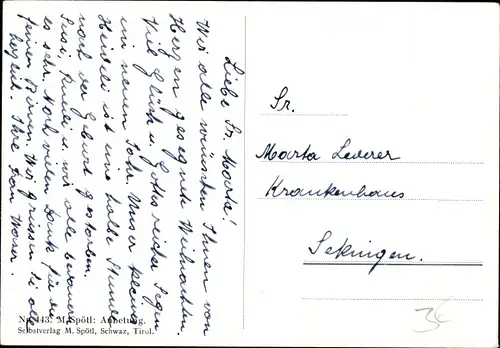 Liebe Sr. Marta!
Wir alle wünschen Ihnen von
Herzen gesegnete Weihnachten.
Viel Glück u. Gottes reichen Segen
im neuen Jahr. Unser kleines
Heideli ist eine halbe Stunde
nach der Geburt gestorben.
Susi, u. wir alle bedauern
es sehr. Noch vielen Dank für die
feinen Birnen. Wir grüssen Sie alle
herzlich. Ihre Fam.
Sr.
Marta Lederer
Krankenhaus
Sekingen.
Nr. 143: M. Spötl: Anbetung.
Selbstverlag M. Spötl, Schwaz, Tirol.